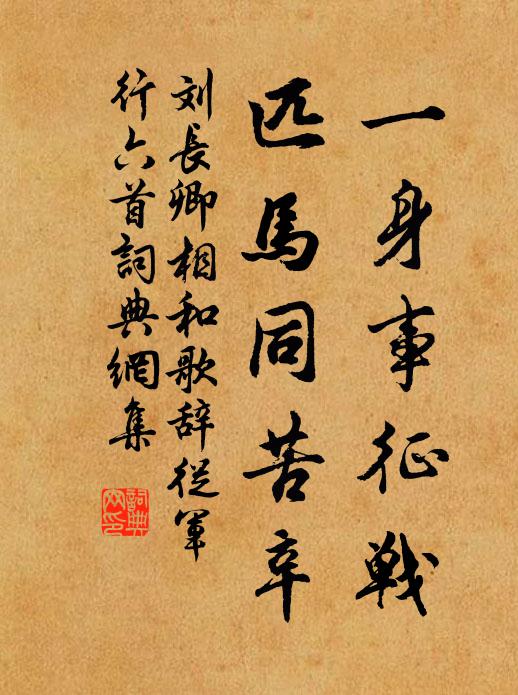 一身事征戰
匹馬同苦辛
刘長卿相和歌辞從軍
行六首詞典網集
詞典網印